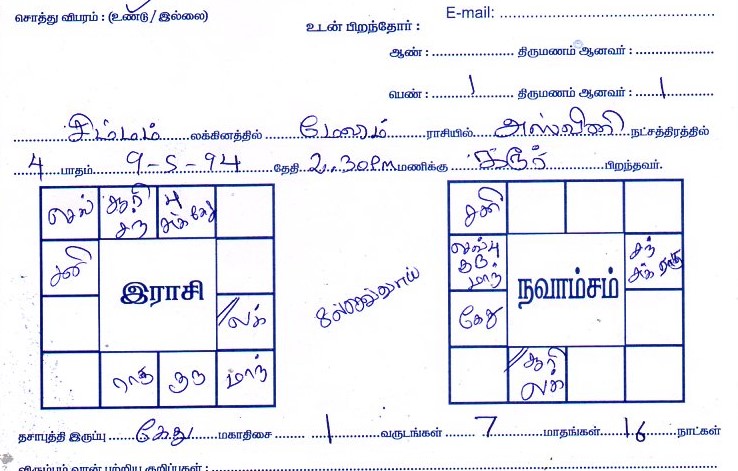 சொத்து விபரம் : (உண்டு / இல்லை)
E-mail:
உடன் பிறந்தோர் :
ஆண் : திருமணம் ஆனவர் :
பெண் : 1 திருமணம் ஆனவர் : 1
சிம்மம் லக்கினத்தில் மேஷம் ராசியில் அஸ்வினி நட்சத்திரத்தில்
4 பாதம் 9-5-94 தேதி 2.30PM மணிக்கு கரூர் பிறந்தவர்.
செவ் சூரி சந் பு சுக் கேது
சனி
இராசி
லக்
ராகு குரு மாந்
சனி
செவ் பு குரு மாந் சந் சுக் ராகு
நவாம்சம்
கேது
சூரி லக்
தசாபுத்தி இருப்பு கேது மகாதிசை 1 வருடங்கள் 7 மாதங்கள் 16 நாட்கள்